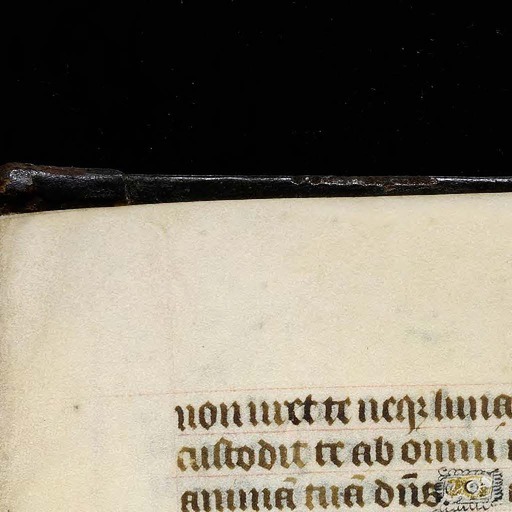 non uret te neqꝫ luna
custodit te ab omni
animā tuā dn̄s.